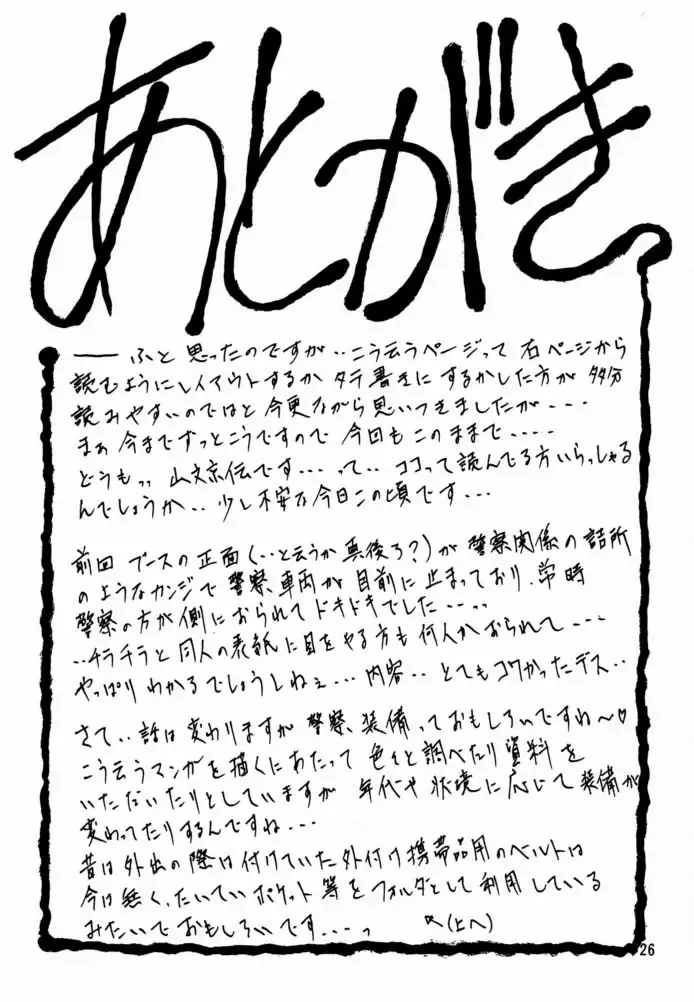 あとがき
── ふと思ったのですが‥こう云うページって右ページから
読むようにレイアウトするかタテ書きにするかした方が多分
読みやすいのではと今更ながら思いつきましたが‥‥
まぁ今までずっとこうですので今回もこのままで‥‥‥
どうもっっ山文京伝です‥‥って‥ココって読んでる方いらっしゃる
んでしょうか‥少し不安な今日この頃です‥‥
前回ブースの正面(‥と云うか真後ろ?)が警察関係の詰所
のようなカンジで警察車両が目前に止まっており、常時
警察の方が側におられてドキドキでした‥‥っっ
‥チラチラと同人の表紙に目をやる方も何人かおられて‥‥
やっぱりわかるでしょうしねぇ‥‥内容‥とてもコワかったデス‥
さて‥話は変わりますが警察装備っておもしろいですね〜♡
こう云うマンガを描くにあたって色々と調べたり資料を
いただいたりとしていますが 年代や状境に応じて装備が
変わってたりするんですね‥‥
昔は外出の際は付けていた外付け携帯品用のベルトは
今は無く、たいていポケット等をフォルダとして利用している
みたいでおもしろいです‥‥っ (上へ)
26